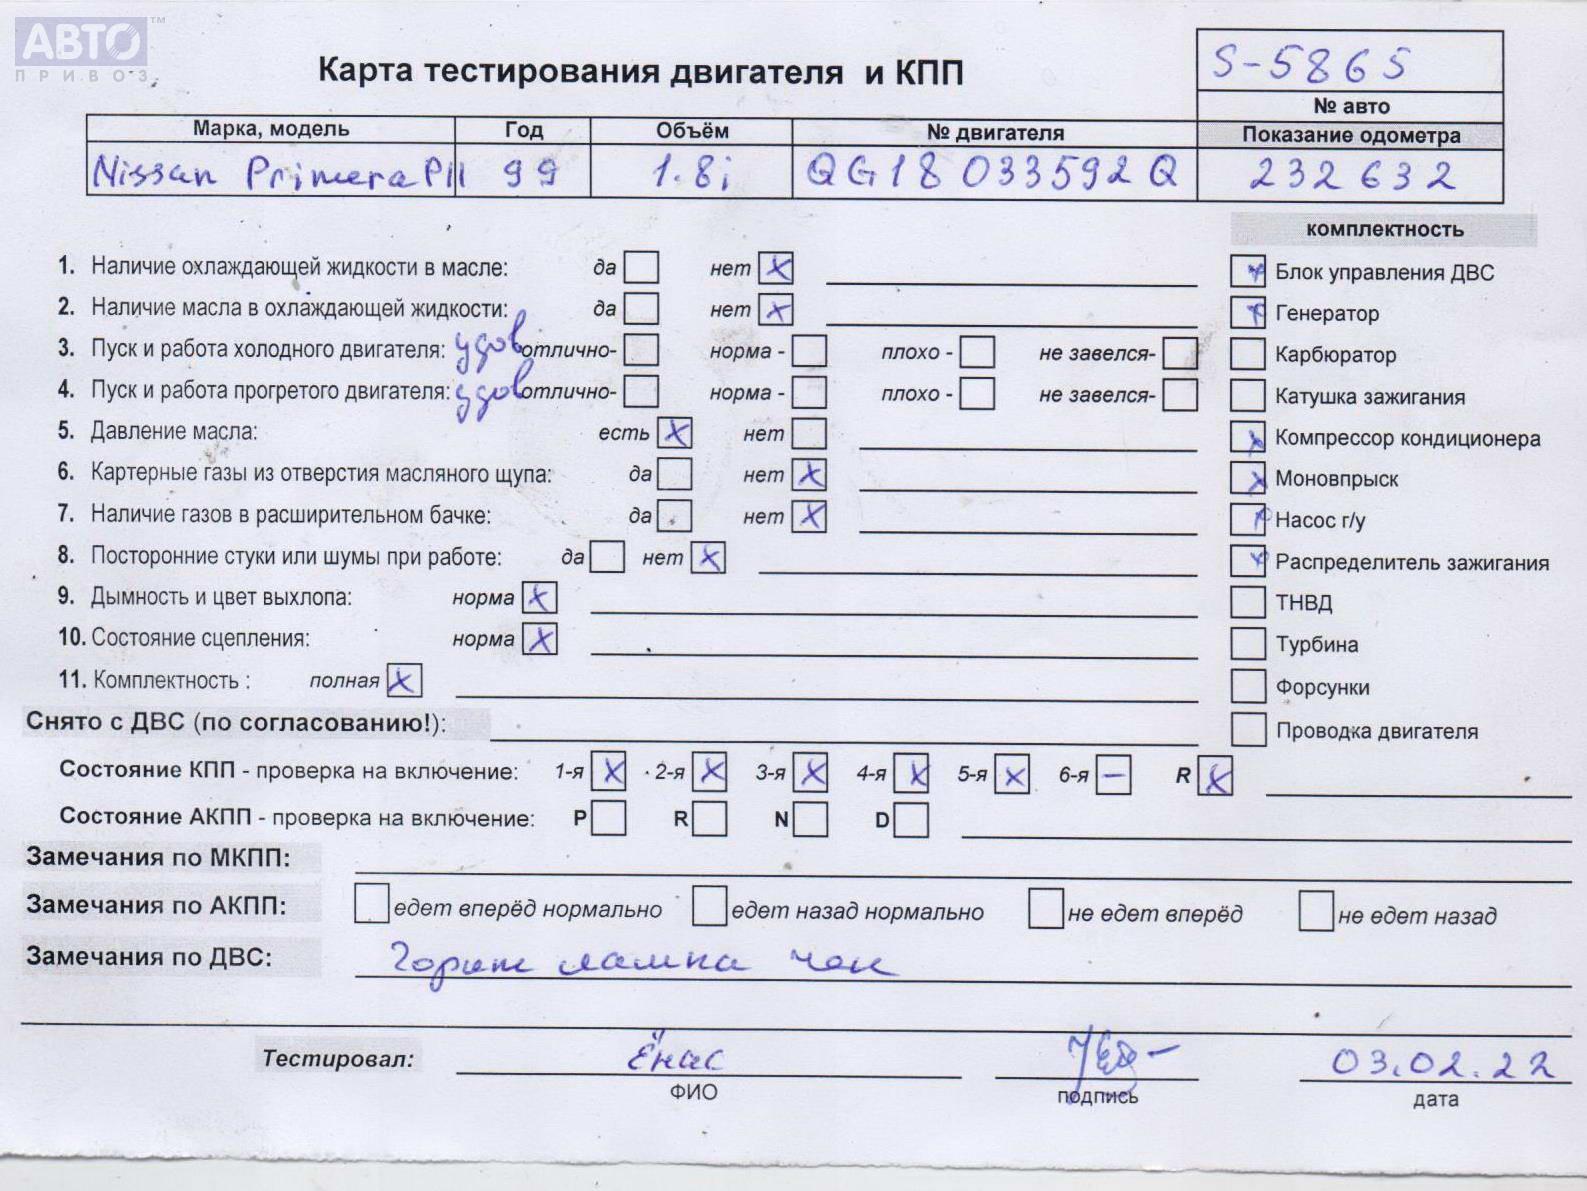 АВТО™
ПРИВОЗ
Карта тестирования двигателя и КПП
S-5865
№ авто
Марка, модель Год Объём № двигателя Показание одометра
Nissan Primera P11 99 1.8i QG18 033592Q 232632
комплектность
1. Наличие охлаждающей жидкости в масле: да нет X
Блок управления ДВС
2. Наличие масла в охлаждающей жидкости: да нет X
Генератор
3. Пуск и работа холодного двигателя: удов отлично- норма - плохо - не завелся-
Карбюратор
4. Пуск и работа прогретого двигателя: удов отлично- норма - плохо - не завелся-
Катушка зажигания
5. Давление масла: есть X нет
Компрессор кондиционера
6. Картерные газы из отверстия масляного щупа: да нет X
Моновпрыск
7. Наличие газов в расширительном бачке: да нет X
Насос г/у
8. Посторонние стуки или шумы при работе: да нет X
Распределитель зажигания
9. Дымность и цвет выхлопа: норма X
ТНВД
10. Состояние сцепления: норма X
Турбина
11. Комплектность : полная X
Форсунки
Снято с ДВС (по согласованию!):
Проводка двигателя
Состояние КПП - проверка на включение: 1-я X 2-я X 3-я X 4-я X 5-я X 6-я — R X
Состояние АКПП - проверка на включение: P R N D
Замечания по МКПП:
Замечания по АКПП: едет вперёд нормально едет назад нормально не едет вперёд не едет назад
Замечания по ДВС: Горит лампа чек
Тестировал: Ёнас 03.02.22
ФИО подпись дата